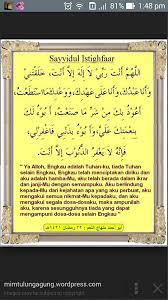 1:48 pm
Sayyidul Istighfaar
اَللّٰهُمَّ أَنْتَ رَبِّيْ لَا إِلٰهَ إِلَّا أَنْتَ، خَلَقْتَنِيْ
وَأَنَا عَبْدُكَ، وَأَنَا عَلَى عَهْدِكَ وَوَعْدِكَ مَا اسْتَطَعْتُ،
أَعُوْذُ بِكَ مِنْ شَرِّ مَا صَنَعْتُ، أَبُوْءُ لَكَ
بِنِعْمَتِكَ عَلَيَّ، وَأَبُوْءُ بِذَنْبِيْ فَاغْفِرْ لِيْ،
فَإِنَّهُ لَا يَغْفِرُ الذُّنُوْبَ إِلَّا أَنْتَ
" Ya Alloh, Engkau adalah Tuhan-ku, tiada Tuhan
selain Engkau, Engkau telah menciptakan diriku dan
aku adalah hamba-Mu, aku telah berada dalam ikrar
dan janji-Mu dengan semampuku. Aku berlindung
kepada-Mu dari kejahatan apa yang aku perbuat, aku
mengakui semua nikmat-Mu dan dosa-dosaku, maka
ampunilah aku, karena sesungguhnya tiada yang dapat
mengampuni dosa-dosa selain Engkau "
mimtulungagung.wordpress.com
Images may be subject to copyright.